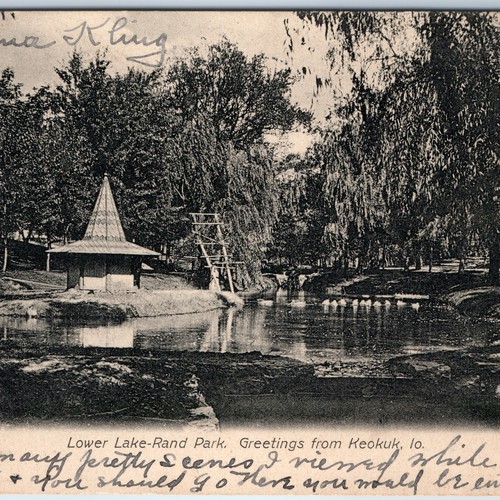 na Kling
Lower Lake-Rand Park. Greetings from Keokuk, Io.
many pretty scenes I viewed while
& you should go here you would be en